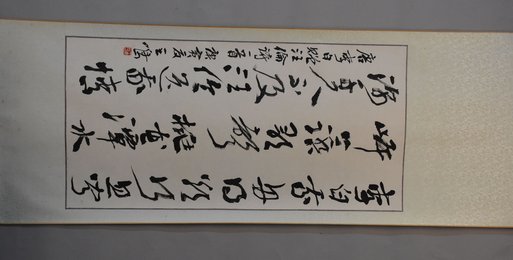 李白乘舟將欲行忽聞
岸上踏歌聲桃花潭水
深千尺不及汪倫送我情
唐李白贈汪倫詩一首